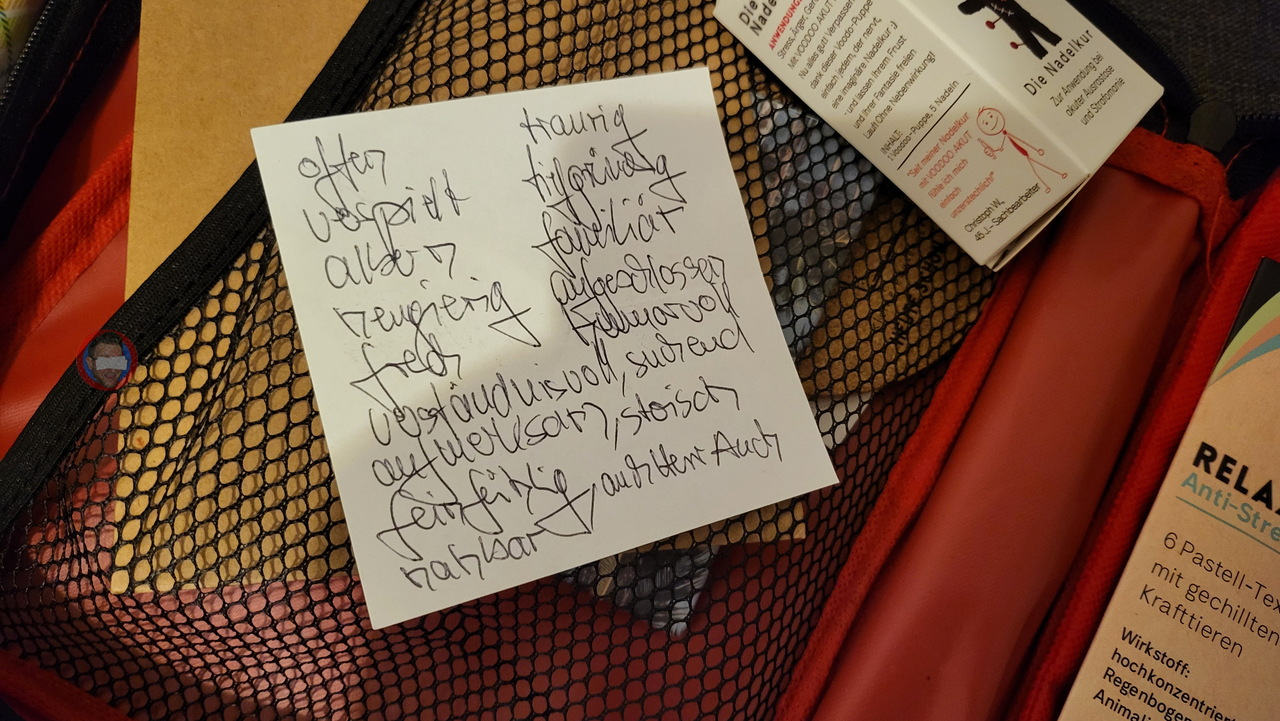 offen
verspielt
albern
neugierig
frech
traurig
tiefgründig
familiär
aufgeschlossen
humorvoll
verständnisvoll, suchend
aufmerksam, stoisch
feinfühlig,
nahbar
Die
ANWENDUNG
Stress, Ärger,
Mit VOODOO AKUT
Nu alles gut! Verpassen
dank dieser Voodoo-Puppe
einfach jedem, der nervt,
eine imaginäre Nadelkur ;-)
und lassen Ihrem Frust
und Ihrer Fantasie freien
Lauf! Ohne Nebenwirkung!
INHALT:
1 Voodoo-Puppe, 5 Nadeln
"Seit meiner Nadelkur
mit VOODOO AKUT
fühle ich mich
einfach
unzerstechlich!"
Christoph W.,
45 J. – Sachbearbeiter
Die Nadelkur
Zur Anwendung bei
akuter Ausrastose
und Strafomanie
RELA
Anti-Stre
6 Pastell-Te
mit gechillten
Krafttieren
Wirkstoff:
hochkonzentrier
Regenboge
Animal